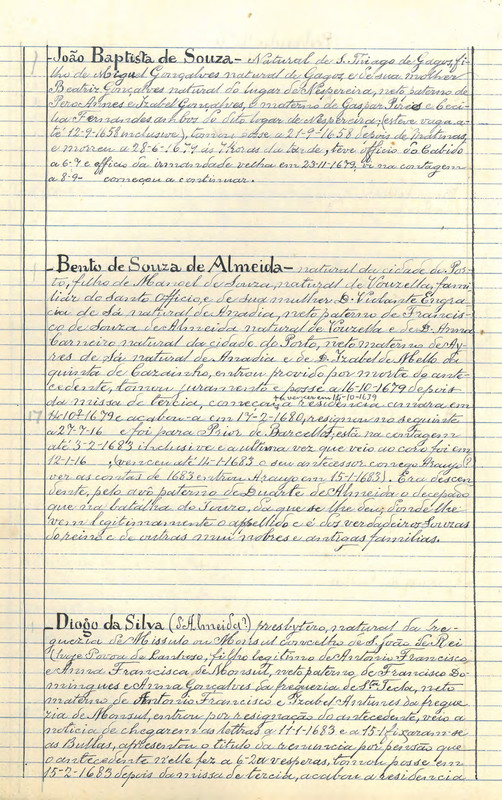 João Baptista de Souza - Natural de S. Thiago de Gagoz, fi-
lho de Miguel Gonçalves natural de Gagoz, e de sua mulher
Beatriz Gonçalves natural do lugar de Nespereira, neto paterno de
Pero Annes e Izabel Gonçalves, e materno de Gaspar Pires e Ceci-
lia Fernandes ambos do dito lugar de Nespereira; (esteve vaga a-
té 12-9-1658 inclusive), tomou posse a 21-9-1658 depois de Matinas,
e morreu a 28-6-1679 ás 7 horas da tarde, teve officio do Cabido
a 6-7 e officio da irmandade velha em 23-11-1679, vi na contagem
a 8-9- começou a continuar.
Bento de Souza de Almeida - natural da cidade do Por-
to, filho de Manoel de Souza, natural de Vouzella, fami-
liar do Santo Officio, e de sua mulher D. Violante Engra-
cia de Sá natural de Anadia, neto paterno de Francis-
co de Souza de Almeida natural de Vouzella e de D. Anna
Carneiro natural da cidade do Porto, neto materno de Ay-
res de Sá natural de Anadia e de D. Izabel de Mello da
quinta de , entrou provido por morte do ante-
cedente, tomou juramento e posse a 16-10-1679 depois
da missa de tercia, começou a residencia em
14-10-1679 e acabou-a em 17-2-1680, resignou no seguinte
a 27-7-16 e foi para Prior de Barcellos, está na contagem
até 3-2-1683 inclusive e a ultima vez que veio ao coro foi em
12-1-16 , (venceu até 14-1-1683 o seu antecessor conego Araujo?
ver as contas de 1683 entrou Araujo em 15-1-1683). Era descen-
dente, pelo avô paterno de Duarte de Almeida o decepado
que na batalha do Touro, da que se lhe deu, donde lhe
vem legitimamente o appellido e é dos verdadeiros Souzas
do reino e de outras mui nobres e antigas familias.
Diogo da Silva (d'Almeida?) presbytero, natural da fre-
guezia de Missulo ou Monsul concelho de S. João de Rei
(hoje Povoa de Lanhoso, filho legitimo de Antonio Francisco
e Anna Francisca de Monsul, neto paterno de Francisco Do-
mingues e Anna Gonçalves da freguezia de Sta Tecla, neto
materno de Antonio Francisco e Izabel Antunes da fregue-
zia de Monsul, entrou por resignação do antecedente, veio a
noticia de chegarem as lettras a 11-1-1683 e a 15-1 fixaram-se
as Bullas, apresentou o titulo da renuncia por pensão que
o antecedente nelle fez a 6-2 a vesperas, tomou posse em
15-2-1683 depois da missa de tercia, acabou a residencia